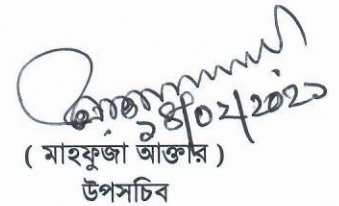 ১৪/০২/২০২১
( মাহফুজা আক্তার )
উপসচিব